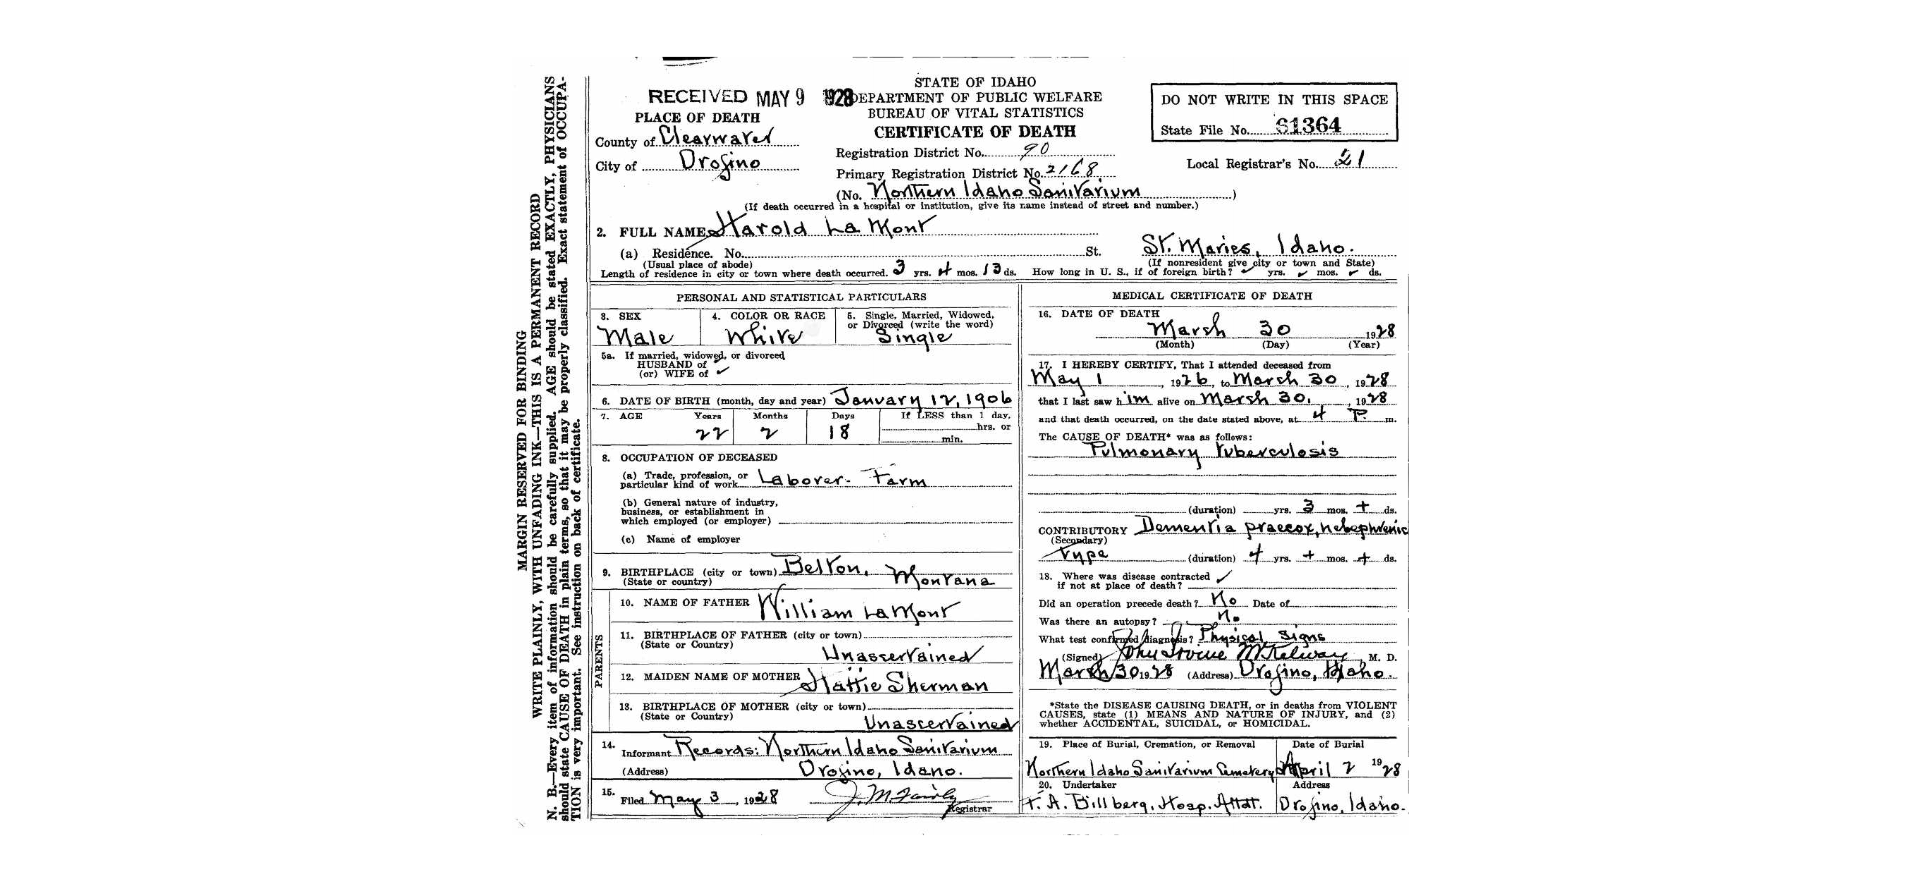 STATE OF IDAHO
RECEIVED MAY 9 1928 DEPARTMENT OF PUBLIC WELFARE
BUREAU OF VITAL STATISTICS
CERTIFICATE OF DEATH
DO NOT WRITE IN THIS SPACE
State File No. 61364
PLACE OF DEATH
County of Clearwater
City of Orofino
Registration District No. 90
Primary Registration District No. 2168
Local Registrar's No. 21
(No. Northern Idaho Sanitarium )
(If death occurred in a hospital or institution, give its name instead of street and number.)
2. FULL NAME Harold La Mont
(a) Residence. No. St. St. Maries, Idaho.
(Usual place of abode) (If nonresident give city or town and State)
Length of residence in city or town where death occurred. 3 yrs. 4 mos. 13 ds. How long in U. S., if of foreign birth? yrs. mos. ds.
PERSONAL AND STATISTICAL PARTICULARS
3. SEX
Male
4. COLOR OR RACE
White
5. Single, Married, Widowed,
or Divorced (write the word)
Single
5a. If married, widowed, or divorced
HUSBAND of
(or) WIFE of
6. DATE OF BIRTH (month, day and year) January 12, 1906
7. AGE Years Months Days If LESS than 1 day,
22 2 18 hrs. or
min.
8. OCCUPATION OF DECEASED
(a) Trade, profession, or
particular kind of work Laborer - Farm
(b) General nature of industry,
business, or establishment in
which employed (or employer)
(c) Name of employer
9. BIRTHPLACE (city or town) Belton, Montana
(State or country)
PARENTS
10. NAME OF FATHER William LaMont
11. BIRTHPLACE OF FATHER (city or town)
(State or Country) Unassertained
12. MAIDEN NAME OF MOTHER Hattie Sherman
13. BIRTHPLACE OF MOTHER (city or town)
(State or Country) Unascertained
14. Informant Records: Northern Idaho Sanitarium
(Address) Orofino, Idaho.
15. Filed May 3, 1928 J. M. Fairly
Registrar
MEDICAL CERTIFICATE OF DEATH
16. DATE OF DEATH
March 30 1928
(Month) (Day) (Year)
17. I HEREBY CERTIFY, That I attended deceased from
May 1, 1926, to March 30, 1928
that I last saw him alive on March 30, 1928
and that death occurred, on the date stated above, at 4 P. m.
The CAUSE OF DEATH* was as follows:
Pulmonary Tuberculosis
(duration) yrs. 3 mos. + ds.
CONTRIBUTORY Dementia praecox, hebephrenic
(Secondary)
Type (duration) 4 yrs. + mos. + ds.
18. Where was disease contracted
if not at place of death?
Did an operation precede death? No Date of
Was there an autopsy? No
What test confirmed diagnosis? Physical Signs
(Signed) John Irvine McKelway M. D.
March 30 1928 (Address) Orofino, Idaho.
*State the DISEASE CAUSING DEATH, or in deaths from VIOLENT
CAUSES, state (1) MEANS AND NATURE OF INJURY, and (2)
whether ACCIDENTAL, SUICIDAL, or HOMICIDAL.
19. Place of Burial, Cremation, or Removal Date of Burial
Northern Idaho Sanitarium Cemetery April 2 1928
20. Undertaker Address
F. A. Billberg, Hosp. Attdt. Orofino, Idaho.
MARGIN RESERVED FOR BINDING
WRITE PLAINLY, WITH UNFADING INK—THIS IS A PERMANENT RECORD
N. B.—Every item of information should be carefully supplied. AGE should be stated EXACTLY, PHYSICIANS
should state CAUSE OF DEATH in plain terms, so that it may be properly classified. Exact statement of OCCUPA-
TION is very important. See instruction on back of certificate.